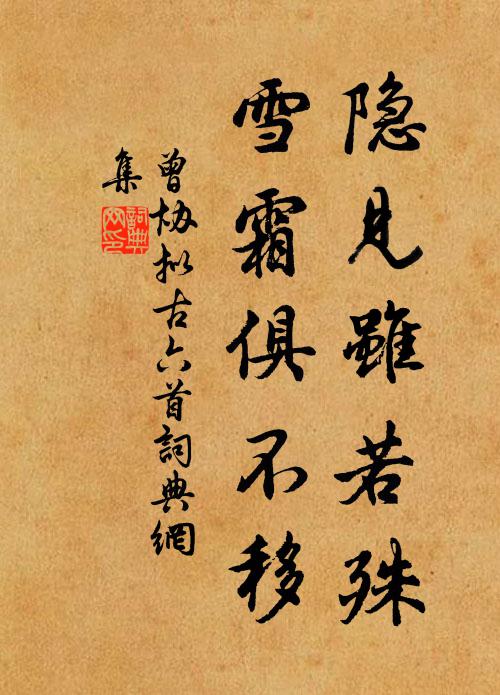 隐见雖若殊
雪霜俱不移
曾协拟古六首詞典網
集
詞典
网印